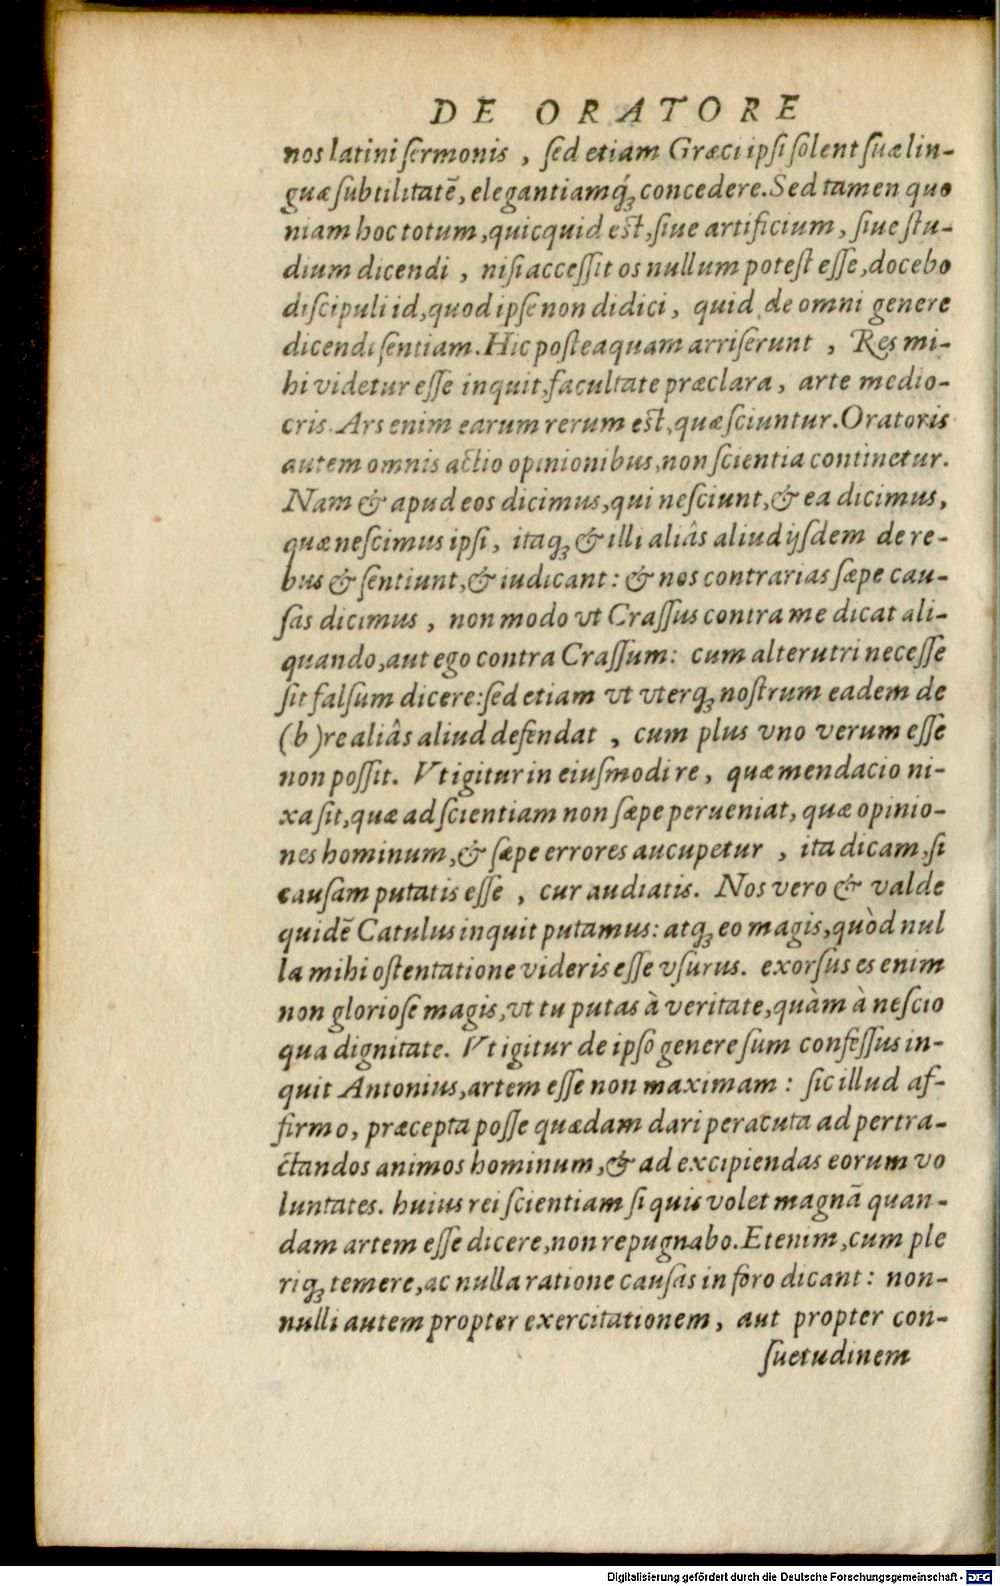 DE ORATORE
nos latini sermonis, sed etiam Græci ipsi solent suæ lin-
guæ subtilitatẽ, elegantiamq́; concedere. Sed tamen quo
niam hoc totum, quicquid est, siue artificium, siue stu-
dium dicendi, nisi accessit os nullum potest esse, docebo
discipuli id, quod ipse non didici, quid de omni genere
dicendi sentiam. Hic posteaquam arriserunt, Res mi-
hi videtur esse inquit, facultate præclara, arte medio-
cris. Ars enim earum rerum est, quæ sciuntur. Oratoris
autem omnis actio opinionibus, non scientia continetur.
Nam & apud eos dicimus, qui nesciunt, & ea dicimus,
quæ nescimus ipsi, itaq; & illi aliâs aliud ijsdem de re-
bus & sentiunt, & iudicant: & nos contrarias sæpe cau-
sas dicimus, non modo vt Crassus contra me dicat ali-
quando, aut ego contra Crassum: cum alterutri necesse
sit falsum dicere: sed etiam vt vterq; nostrum eadem de
(b) re aliâs aliud defendat, cum plus vno verum esse
non possit. Vt igitur in eiusmodi re, quæ mendacio ni-
xa sit, quæ ad scientiam non sæpe perueniat, quæ opinio-
nes hominum, & sæpe errores aucupetur, ita dicam, si
causam putatis esse, cur audiatis. Nos vero & valde
quidẽ Catulus inquit putamus: atq; eo magis, quòd nul
la mihi ostentatione videris esse vsurus. exorsus es enim
non gloriose magis, vt tu putas à veritate, quàm à nescio
qua dignitate. Vt igitur de ipso genere sum confessus in-
quit Antonius, artem esse non maximam: sic illud af-
firmo, præcepta posse quædam dari peracuta ad pertra-
ctandos animos hominum, & ad excipiendas eorum vo
luntates. huius rei scientiam si quis volet magnã quan-
dam artem esse dicere, non repugnabo. Etenim, cum ple
riq; temere, ac nulla ratione causas in foro dicant: non-
nulli autem propter exercitationem, aut propter con-
suetudinem
Digitalisierung gefördert durch die Deutsche Forschungsgemeinschaft - DFG